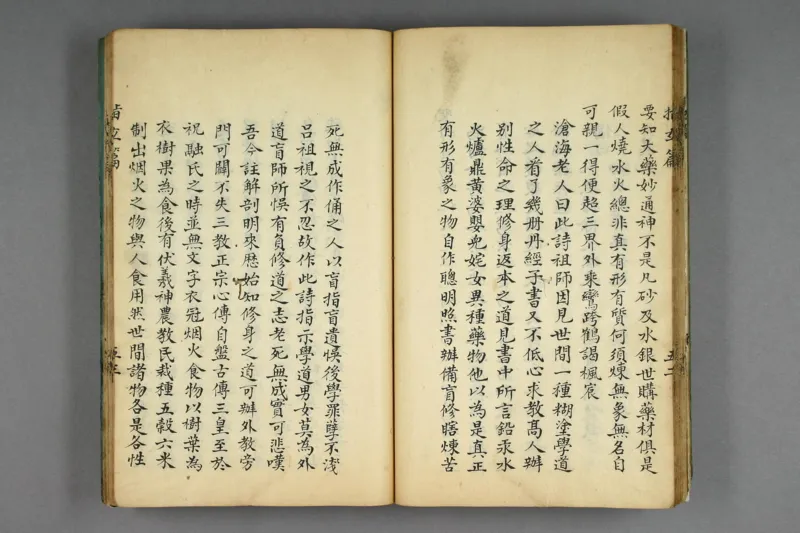 要知大藥妙通神不是凡砂及水銀世購藥材俱是
假人燒水火總非真有形有質何須煉無象無名自
可親一得便超三界外乘鸞跨鶴謁楓宸
滄海老人曰此詩祖師因見世間一種糊塗學道
之人看了幾册丹經子書又不低心求教髙人辦
别性命之理修身返本之道見書中所言鉛汞水
火爐鼎黃婆嬰兒姹女異種藥物他以為是真正
有形有象之物自作聰明照書辦備盲修瞎煉苦
死無成作俑之人以盲指盲遺悞後學罪孽不淺
吕祖視之不忍故作此詩指示學道男女莫為外
道盲師所悞有負修道之志老死無成實可悲嘆
吾今註解剖明來歴始知修身之道可辦外教旁
門可闢不失三教正宗心傳自盤古傳三皇至於
祝融氏之時並無文字衣冠烟火食物以樹葉為
衣樹果為食後有伏羲神農教民栽種五穀六米
制出烟火之物與人食用然世間諸物各是各性
指玄篇